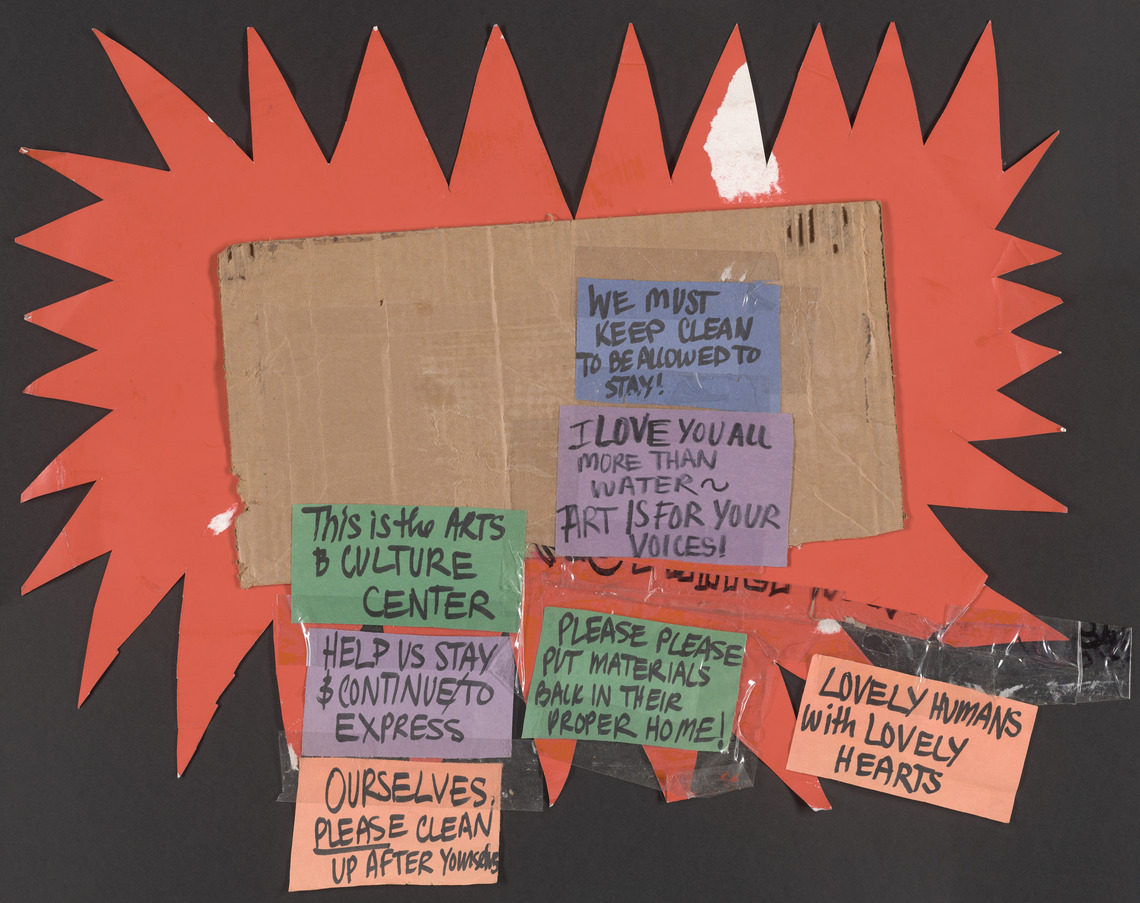 WE MUST
KEEP CLEAN
TO BE ALLOWED TO
STAY!
I LOVE YOU ALL
MORE THAN
WATER ~
ART IS FOR YOUR
VOICES!
This is the ARTS
& CULTURE
CENTER
HELP US STAY
& CONTINUE TO
EXPRESS
OURSELVES,
PLEASE CLEAN
UP AFTER YOURSELVES
PLEASE PLEASE
PUT MATERIALS
BACK IN THEIR
PROPER HOME!
LOVELY HUMANS
with LOVELY
HEARTS